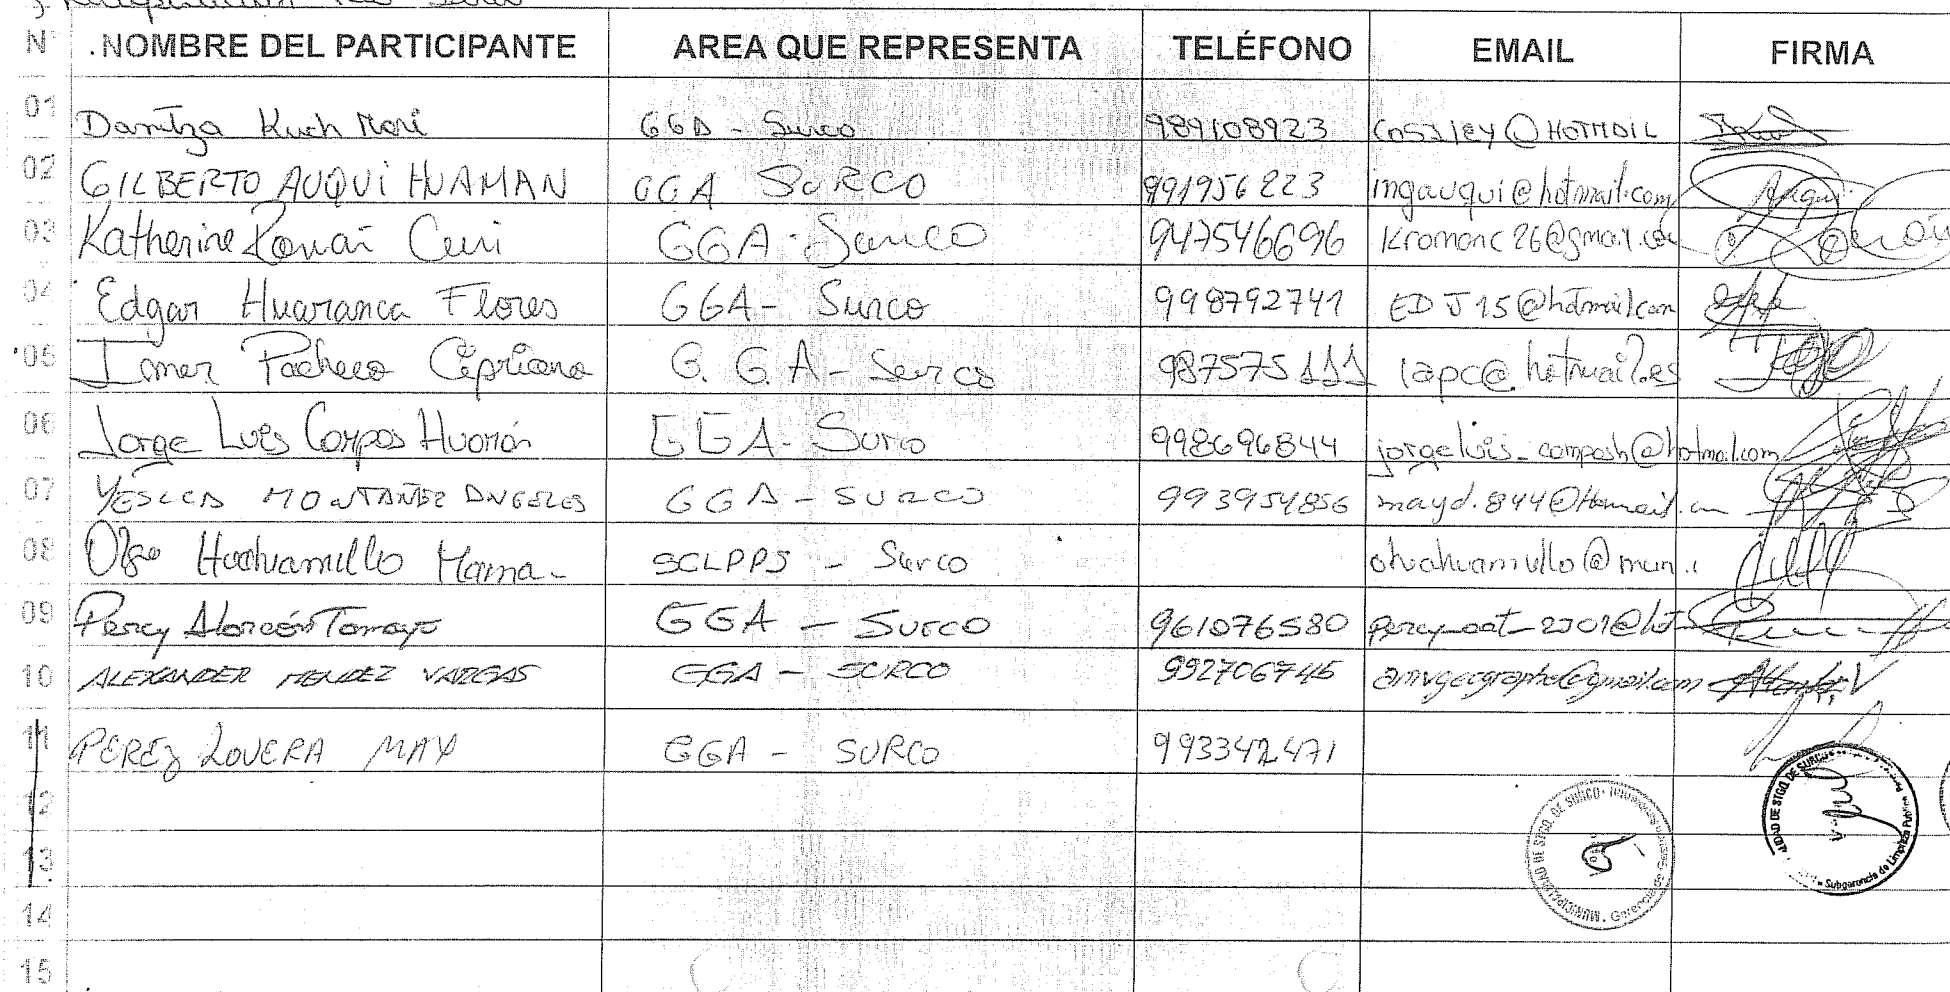 N° NOMBRE DEL PARTICIPANTE AREA QUE REPRESENTA TELÉFONO EMAIL FIRMA
01 Danitza Kuch Mori GGA - Surco 989108923 @HOTMAIL
02 GILBERTO AUQUI HUAMAN GGA SURCO 991956223 ingauqui@hotmail.com Auqui
03 Katherine Curi GGA - Surco 947546696 Kromanc26@gmail.com
04 Edgar Huaranca Flores GGA - Surco 998792741 EDJ15@hotmail.com
05 Ismer Pacheco Cipriano G.G.A - Surco 987575111 iapc@hotmail.es
06 Jorge Luis Campos Huamán GGA - Surco 998696844 jorgeluis_camposh@hotmail.com
07 YESICA MONTAÑEZ ANGELES GGA - SURCO 993954856 mayd.844@
08 Olga Huahuamullo Mama- SCLPPJ - Surco ohuahuamullo@mun
09 Percy Alarcón Tamayo GGA - SURCO 961076580 percy_aat_2001@hot
10 ALEXANDER MENDEZ VARGAS GGA - SURCO 992706745 amvgeographe@gmail.com
11 PEREZ LOVERA MAX GGA - SURCO 993342471
12
13
14
15
MUNICIPALIDAD DE STGO. DE SURCO Gerencia de
DAD DE STGO. DE SURCO Subgerencia de Limpieza Pública